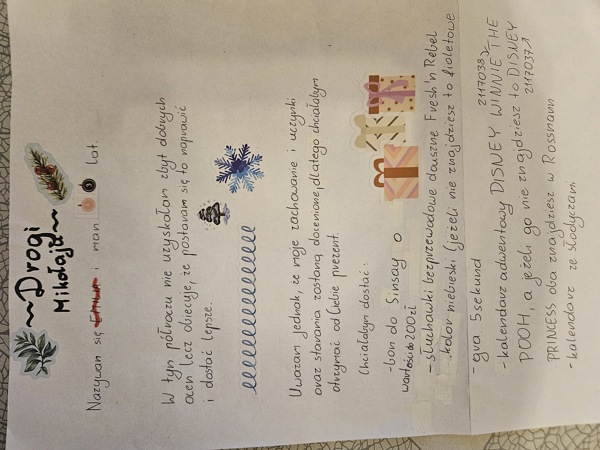 ~Drogi
Mikołaju~
Nazywam się i mam lat.
W tym półroczu nie uzyskałam zbyt dobrych
ocen lecz obiecuję, że postaram się to naprawić
i dostać lepsze.
Uważam jednak, że moje zachowanie i uczynki
oraz starania zostaną docenione, dlatego chciałabym
otrzymać od Ciebie prezent.
Chciałabym dostać:
-bon do Sinsay o
wartości do 200zł
-słuchawki bezprzewodowe douszne Fresh'n Rebel
kolor niebieski (jeżeli nie znajdziesz to fioletowe
-gra 5sekund
2117038
-kalendarz adwentowy DISNEY WINNIE THE
POOH, a jeżeli go nie znajdziesz to DISNEY
2117037
PRINCESS oba znajdziesz w Rossmann
-kalendarz ze słodyczami